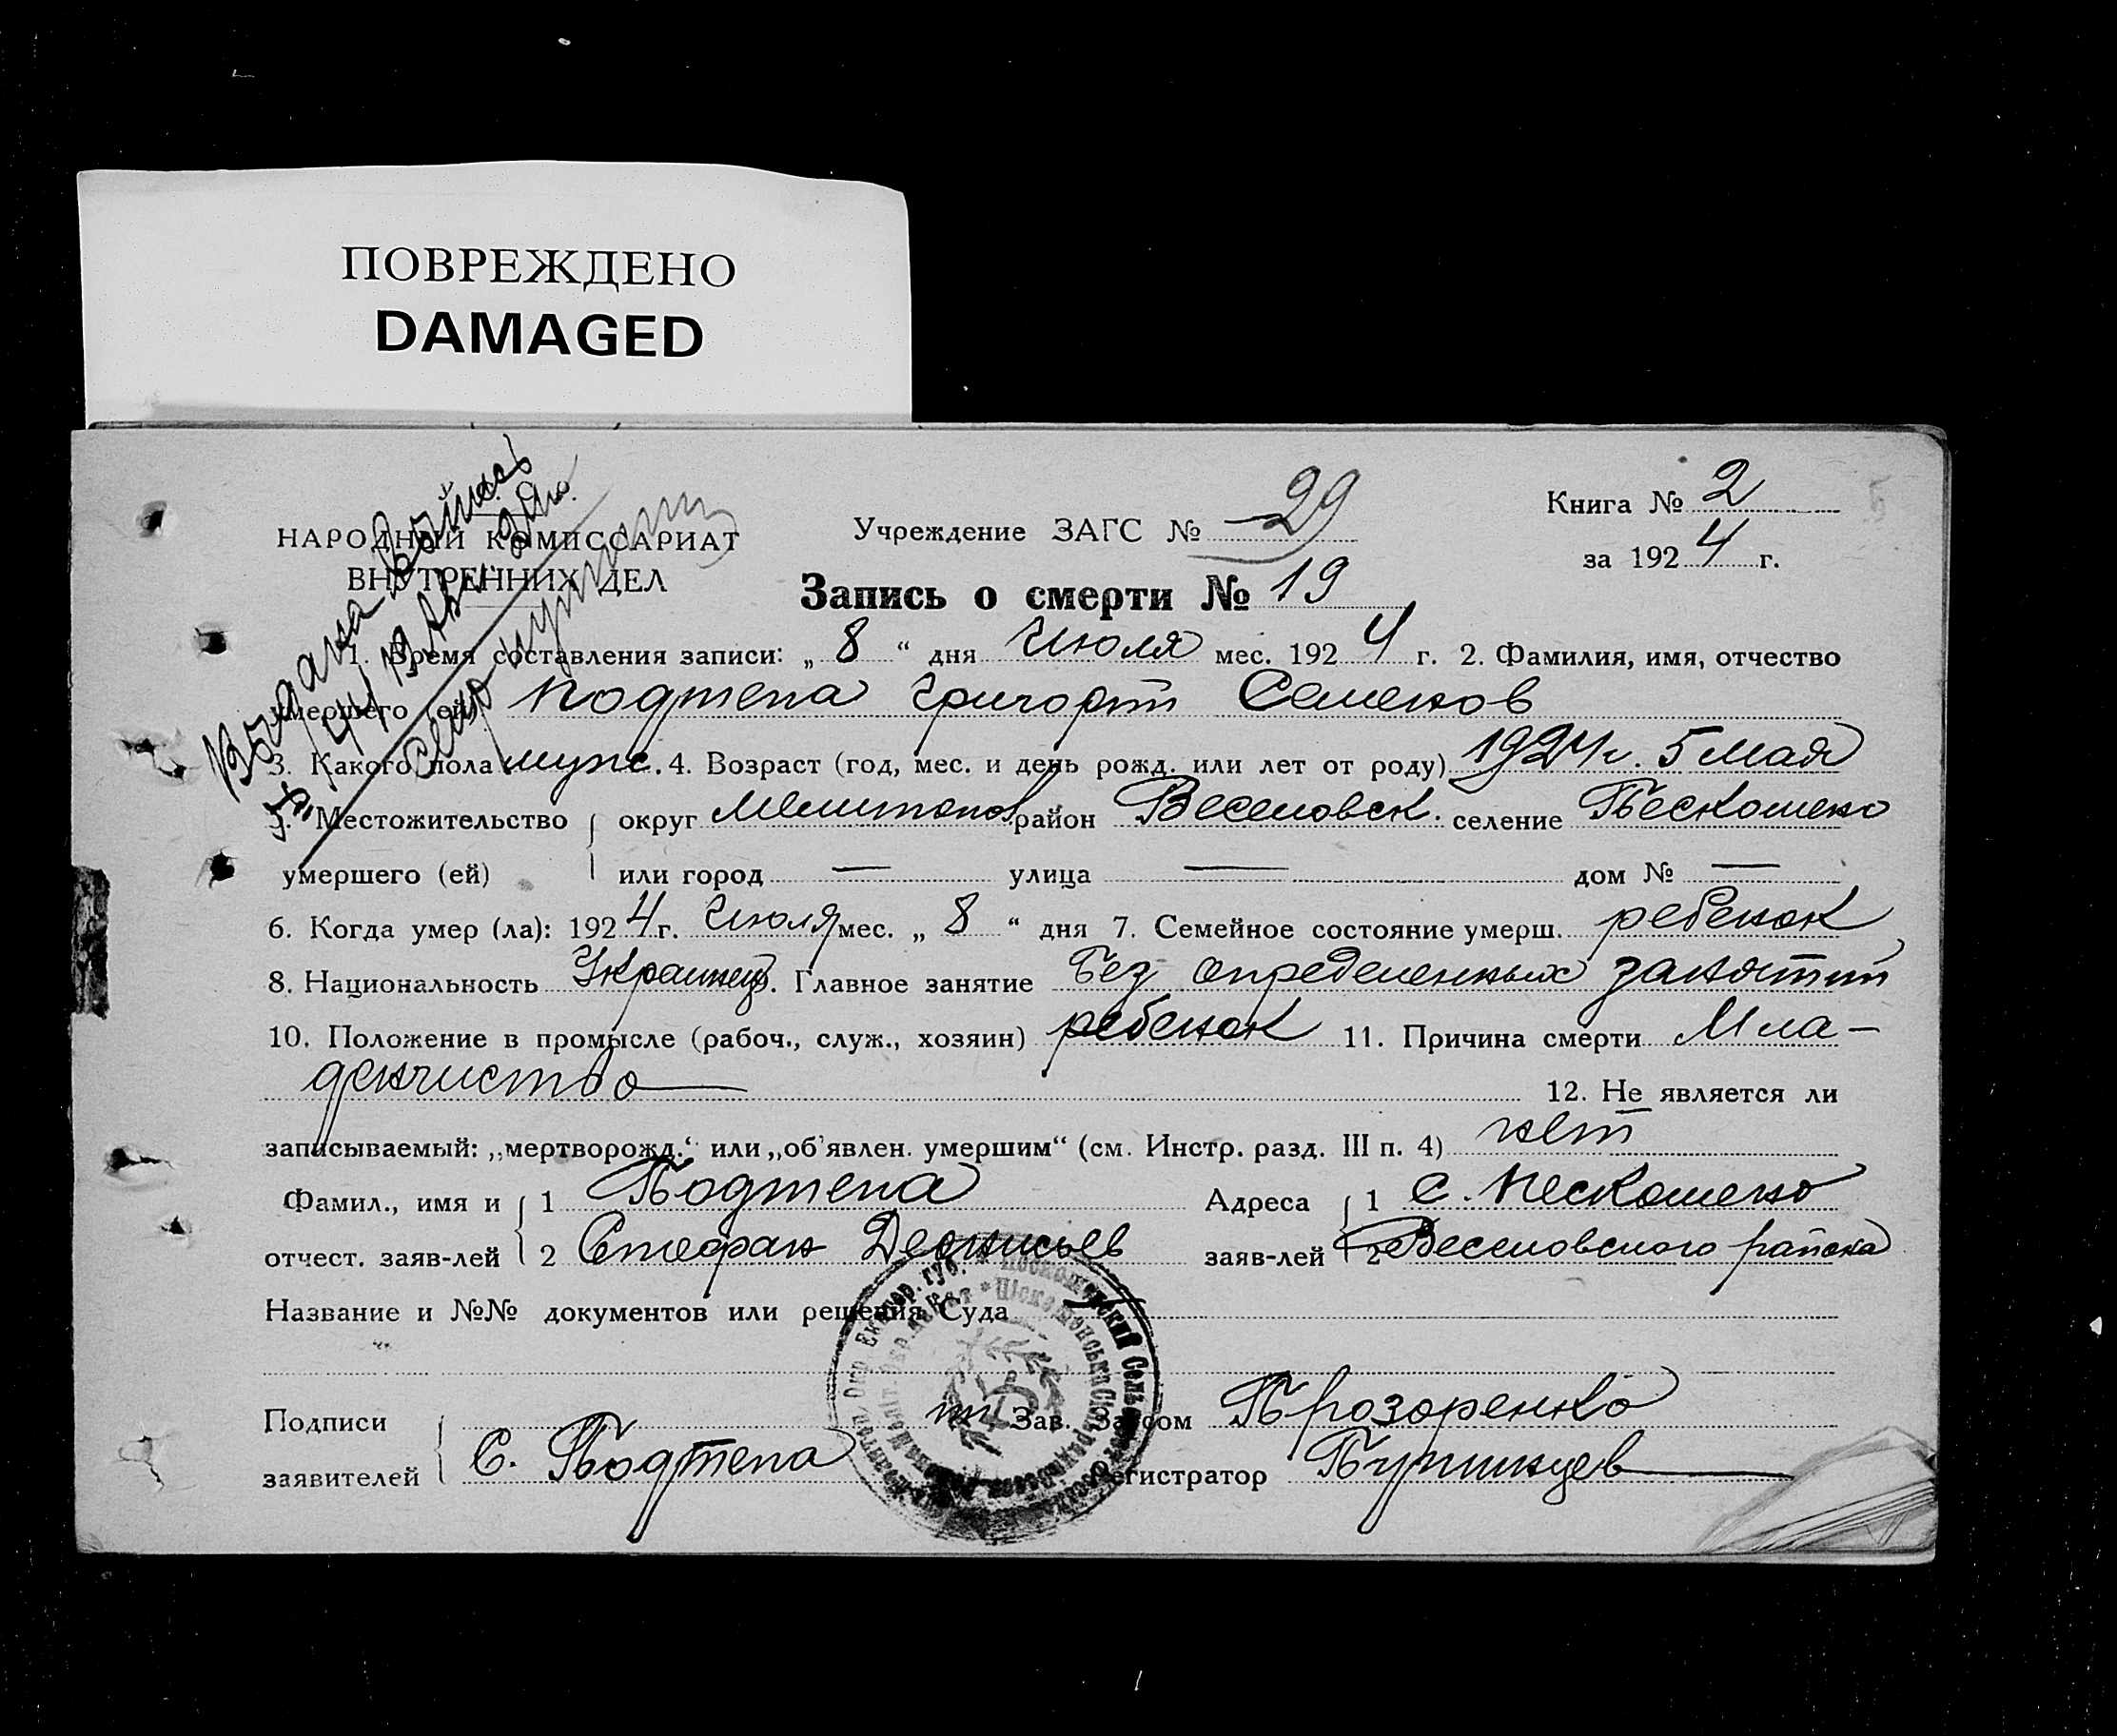 ПОВРЕЖДЕНО
DAMAGED
Выдана выпись
НАРОДНЫЙ КОМИССАРИАТ
ВНУТРЕННИХ ДЕЛ
Учреждение ЗАГС № 29
Книга № 2
за 1924 г.
Запись о смерти № 19
1. Время составления записи: „8“ дня Июля мес. 1924 г. 2. Фамилия, имя, отчество
умершего (ей) Подтепа Григорий Семенов
3. Какого пола муж. 4. Возраст (год, мес. и день рожд. или лет от роду) 1924 г. 5 Мая
5. Местожительство округ Мелитопов район Веселовск. селение Пескошено
умершего (ей) или город — улица — дом № —
6. Когда умер (ла): 1924 г. Июля мес. „8“ дня 7. Семейное состояние умерш. ребенок
8. Национальность Украинец. Главное занятие Без определенных занятий
10. Положение в промысле (рабоч., служ., хозяин) ребенок 11. Причина смерти Мла-
денчиство 12. Не является ли
записываемый: „мертворожд.“ или „об'явлен. умершим“ (см. Инстр. разд. III п. 4) нет
Фамил., имя и 1 Подтепа Адреса 1 С. Пескошено
отчест. заяв-лей 2 Стефан Деонисьев заяв-лей 2 Веселовского района
Название и №№ документов или решения Суда
Подписи Зав. Загсом Прозоренко
заявителей С. Подтепа Регистратор